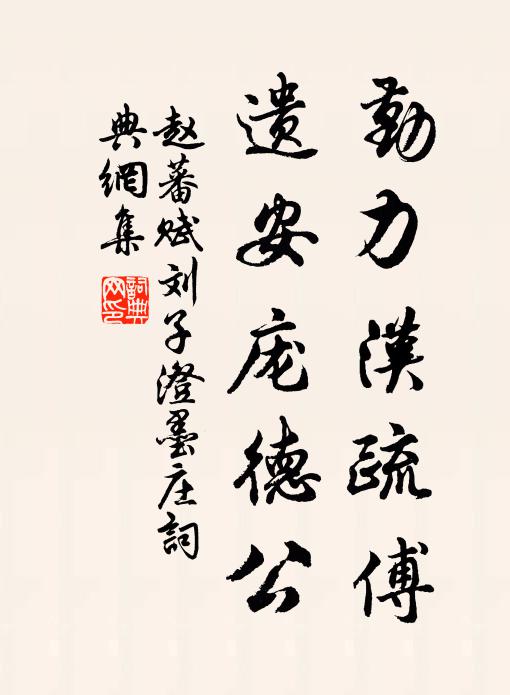 勤力漢疏傅
遗安庞德公
赵蕃赋刘子澄墨庄詞
典網集
詞典网印